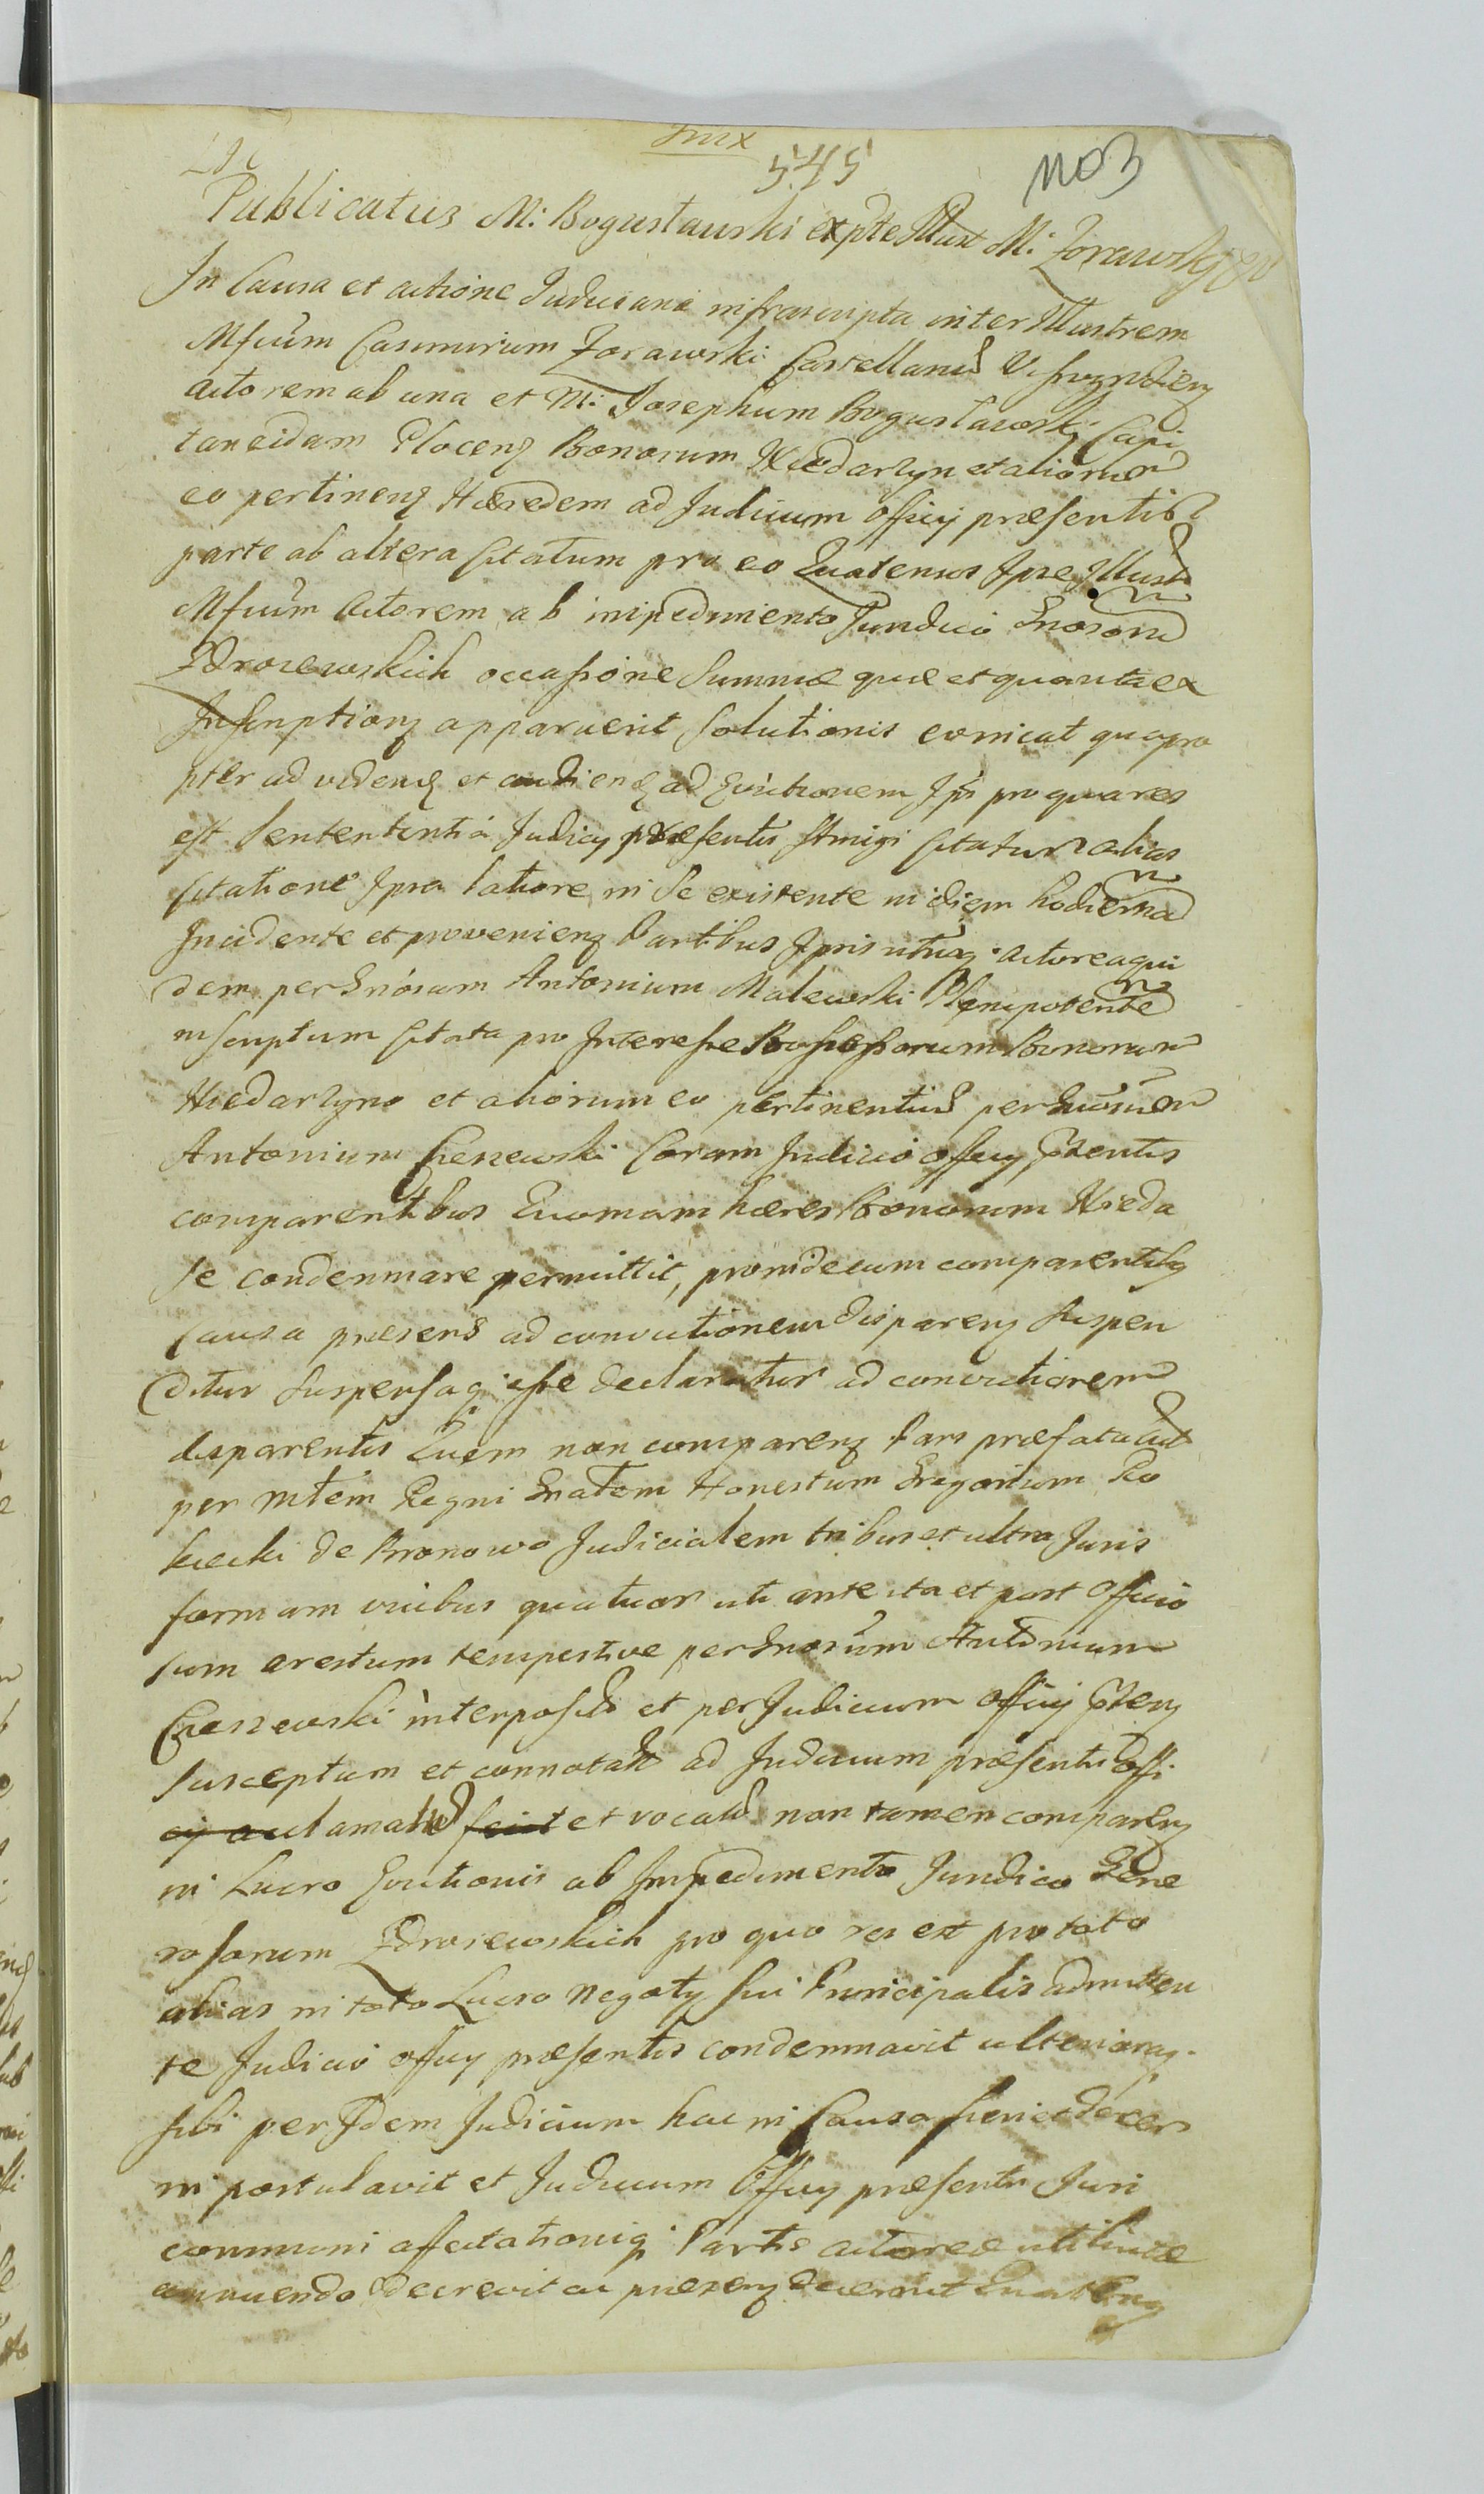 545
1103
Publicatus M: Bogusławski ex pte Illust M: Zorawski
In Causa et actione Judiciaria infrascripta inter Illustrem
Mfcum Casimirum Zorawski Castellanu
actorem ab una et M: Josephum Bogusławski Capi
taneidam Plocens Bonorum Niedarzyn et alioru
eo pertinens Hæredem ad Judicium Officij præsentis
parte ab altera Citatum pro eo Quatenus Ipse Illust
Mfcum Actorem ab impedimento Juridico Gnosoru
Zdrozewskich occasione Summæ quæ et quanta ex
Inscriptions apparuerit Solutionis evincat quapro
pter ad vidend et audiend ad Evictionem Ipsi pro qua res
est Sententintiá Judicij præsentis Citatur alias
Citatione Ipsa latiore in Se existente in diem hodierna
Incidente et proveniens Partibus Ipsis utrisq actorea qui
dem per Gnósum Antonium Malewski Plenipotente
inscriptum Citata pro Interesse Possessorum Bonorum
Niedarzyno et aliorum eo pertinentiu per Gnosum
Antonium Czeszewski Coram Judicio Officij pntis
comparentibus Quoniam hæres Bonorum Nieda
se condemnare permittit, proinde cum comparentibs
Causa præsens ad convictionem disparens Suspen
ditur Suspensaq esse declaratur ad convictionem
disparentis Quem non comparens Pars præfata
per Mtem Regni Gnalem Honestum Gregorium Ro
kicki de Bronowo Judicialem tribus et ultra Juris
formam vicibus quatuor uti ante ita et post Officio
sum arestum tempestive per Gnosum Antonium
Czeszewski interposit et per Judicium Officij pns
susceptum et connotatt ad Judicium præsentis Offi
cij aclamatu fecit et vocatu non tamen comparens
in Lucro Evictionis ab Impedimento Juridico Gene
rosorum Zdrozewskich pro quo res est pro toto
alias in toto Lucro Negotij sui Principalis admitten
te Judicio Officij præsentis condemnavit ulterioraq
sibi per Idem Judicium hac in Causa fieri et decer
ni postulavit et Judicium Officij præsentis Juri
communi affectationiq Partis actoreæ utilitate
annuendo decrevit ac præsens decernit Quatens